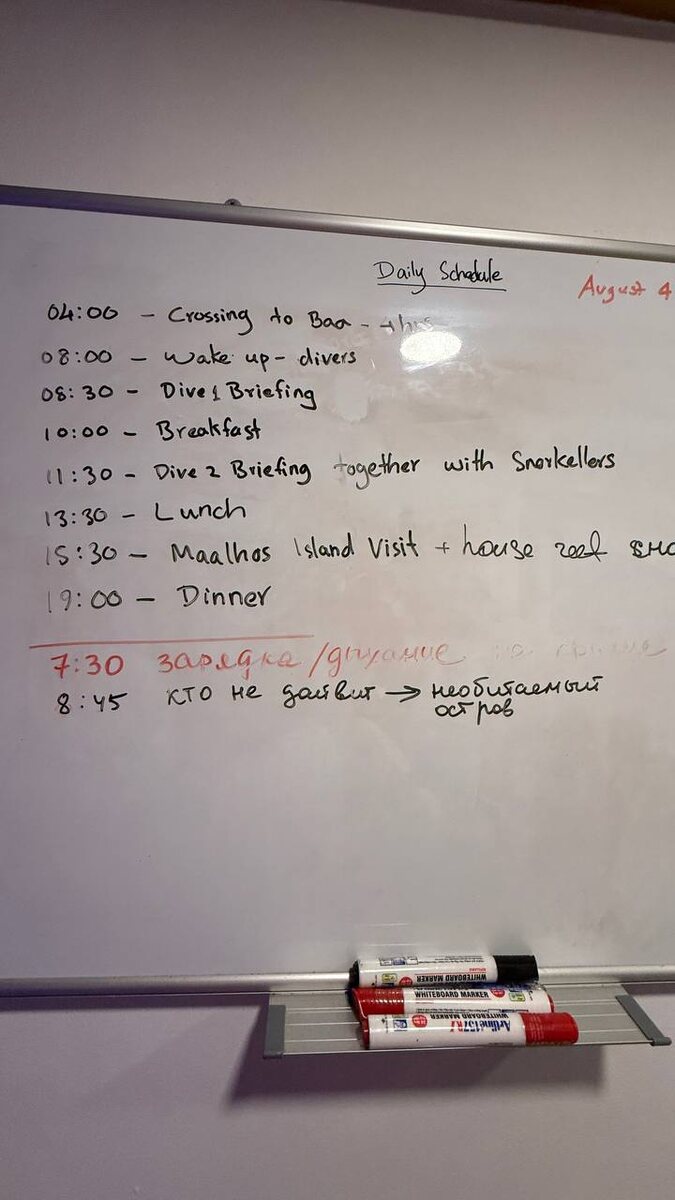 Daily Schedule
August 4
04:00 - Crossing to Baa - 4hrs
08:00 - Wake up - divers
08:30 - Dive 1 Briefing
10:00 - Breakfast
11:30 - Dive 2 Briefing together with Snorkellers
13:30 - Lunch
15:30 - Maalhos Island Visit + house reef sno
19:00 - Dinner
7:30 зарядка/дыхание на крыше
8:45 кто не дайвит → необитаемый
остров
WHITEBOARD MARKER
WHITEBOARD MARKER
Artline 157R
WHITEBOARD MARKER